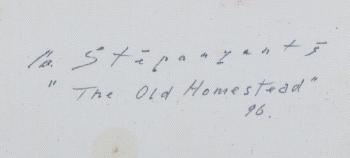 Stepanyants
"The Old Homestead"
96.